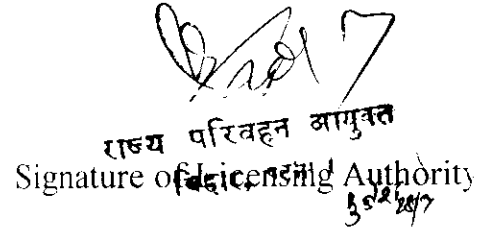 राज्य परिवहन आयुक्त
बिहार, पटना।
Signature of Licensing Authority